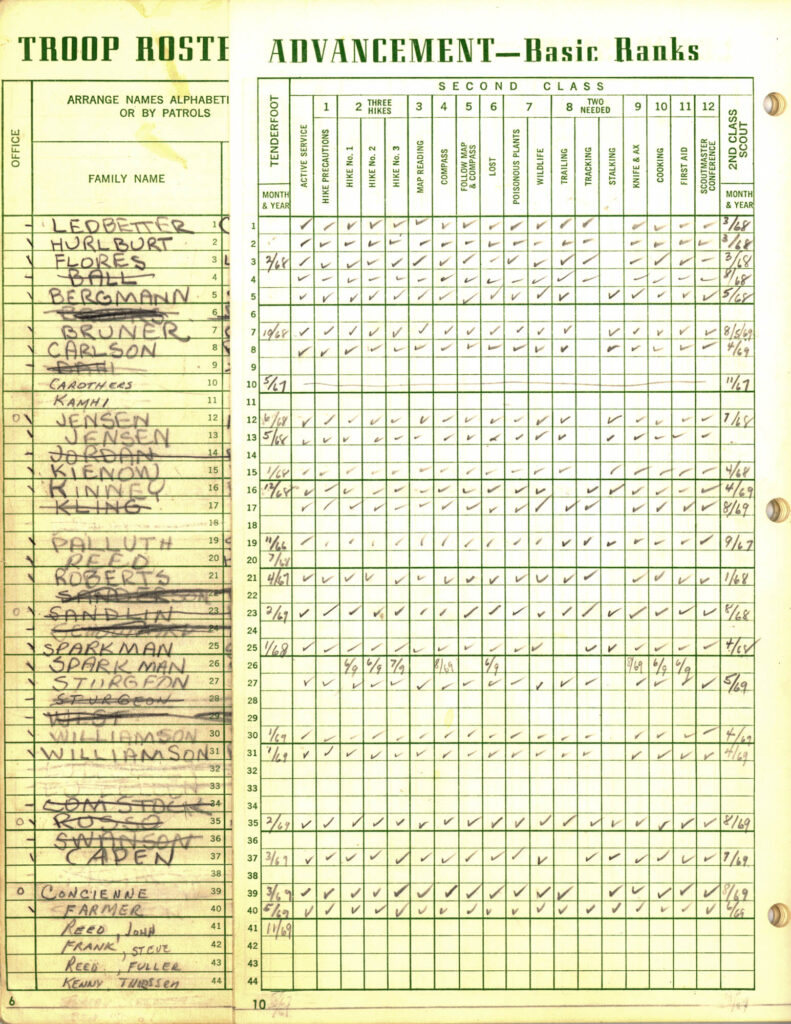 TROOP ROSTE
ADVANCEMENT—Basic Ranks
ARRANGE NAMES ALPHABETI
OR BY PATROLS
OFFICE
FAMILY NAME
SECOND CLASS
1 2 THREE HIKES 3 4 5 6 7 8 TWO NEEDED 9 10 11 12
TENDERFOOT
ACTIVE SERVICE
HIKE PRECAUTIONS
HIKE No. 1
HIKE No. 2
HIKE No. 3
MAP READING
COMPASS
FOLLOW MAP & COMPASS
LOST
POISONOUS PLANTS
WILDLIFE
TRAILING
TRACKING
STALKING
KNIFE & AX
COOKING
FIRST AID
SCOUTMASTER CONFERENCE
2ND CLASS SCOUT
MONTH & YEAR
MONTH & YEAR
LEDBETTER 1 1 3/68
HURLBURT 2 2 3/68
FLORES 3 3 2/68 3/68
BALL 4 4 8/68
BERGMANN 5 5 5/68
6 6
BRUNER 7 7 10/68 8/5/69
CARLSON 8 8 4/69
DAHI 9 9
CAROTHERS 10 10 5/67 11/67
KAMHI 11 11
JENSEN 12 12 6/68 7/68
JENSEN 13 13 5/68
JORDAN 14 14
KIENOW 15 15 1/68 4/68
KINNEY 16 16 12/68 4/69
KLING 17 17 8/69
18 18
PALLUTH 19 19 11/66 9/67
REED 20 20 7/68
ROBERTS 21 21 4/67 1/68
SANDERSON 22 22
SANDLIN 23 23 2/69 8/68
24 24
SPARKMAN 25 25 1/68 4/68
SPARKMAN 26 26 6/9 6/9 7/9 8/69 6/9 9/69 6/9 6/9
STURGEON 27 27 5/69
STURGEON 28 28
WEST 29 29
WILLIAMSON 30 30 1/69 4/69
WILLIAMSON 31 31 1/69 4/69
32 32
33 33
COMSTOCK 34 34
RUSSO 35 35 2/69 8/69
SWANSON 36 36
CAPEN 37 37 3/69 7/69
38 38
CONCIENNE 39 39 3/69 8/69
FARMER 40 40 5/69 6/69
REED, JOHN 41 41 11/69
FRANK, STEVE 42 42
REED, FULLER 43 43
KENNY THIESSEN 44 44
6 10